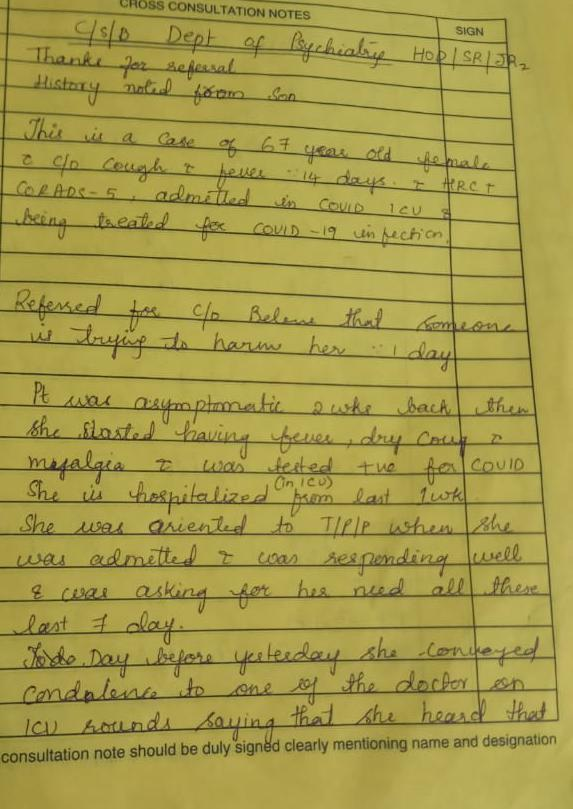 CROSS CONSULTATION NOTES
SIGN
C/S/B Dept of Psychiatry HOD/SR/JR2
Thanks for referral
History noted from Son
This is a case of 67 year old female
c̄ c/o cough c̄ fever ∵ 14 days. c̄ HRCT
CORADS-5, admitted in COVID ICU &
being treated for COVID-19 infection.
Referred for c/o Beleve that someone
is trying to harm her ∵ 1 day
Pt was asymptomatic 2 wks back then
she started having fever, dry coug c̄
mayalgia c̄ was tested +ve for COVID
She is hospitalized (in ICU) from last 1 wk
She was oriented to T/P/P when she
was admetted c̄ was responding well
& was asking for her need all these
last 7 day.
Day before yesterday she conveyed
condolence to one of the doctor on
ICU rounds saying that she heard that
consultation note should be duly signed clearly mentioning name and designation